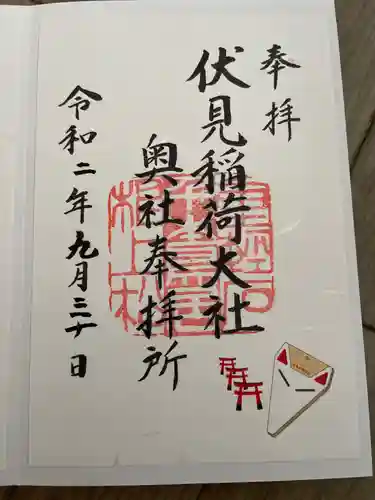 奉拝
伏見稲荷大社
奥社奉拝所
令和二年九月三十日